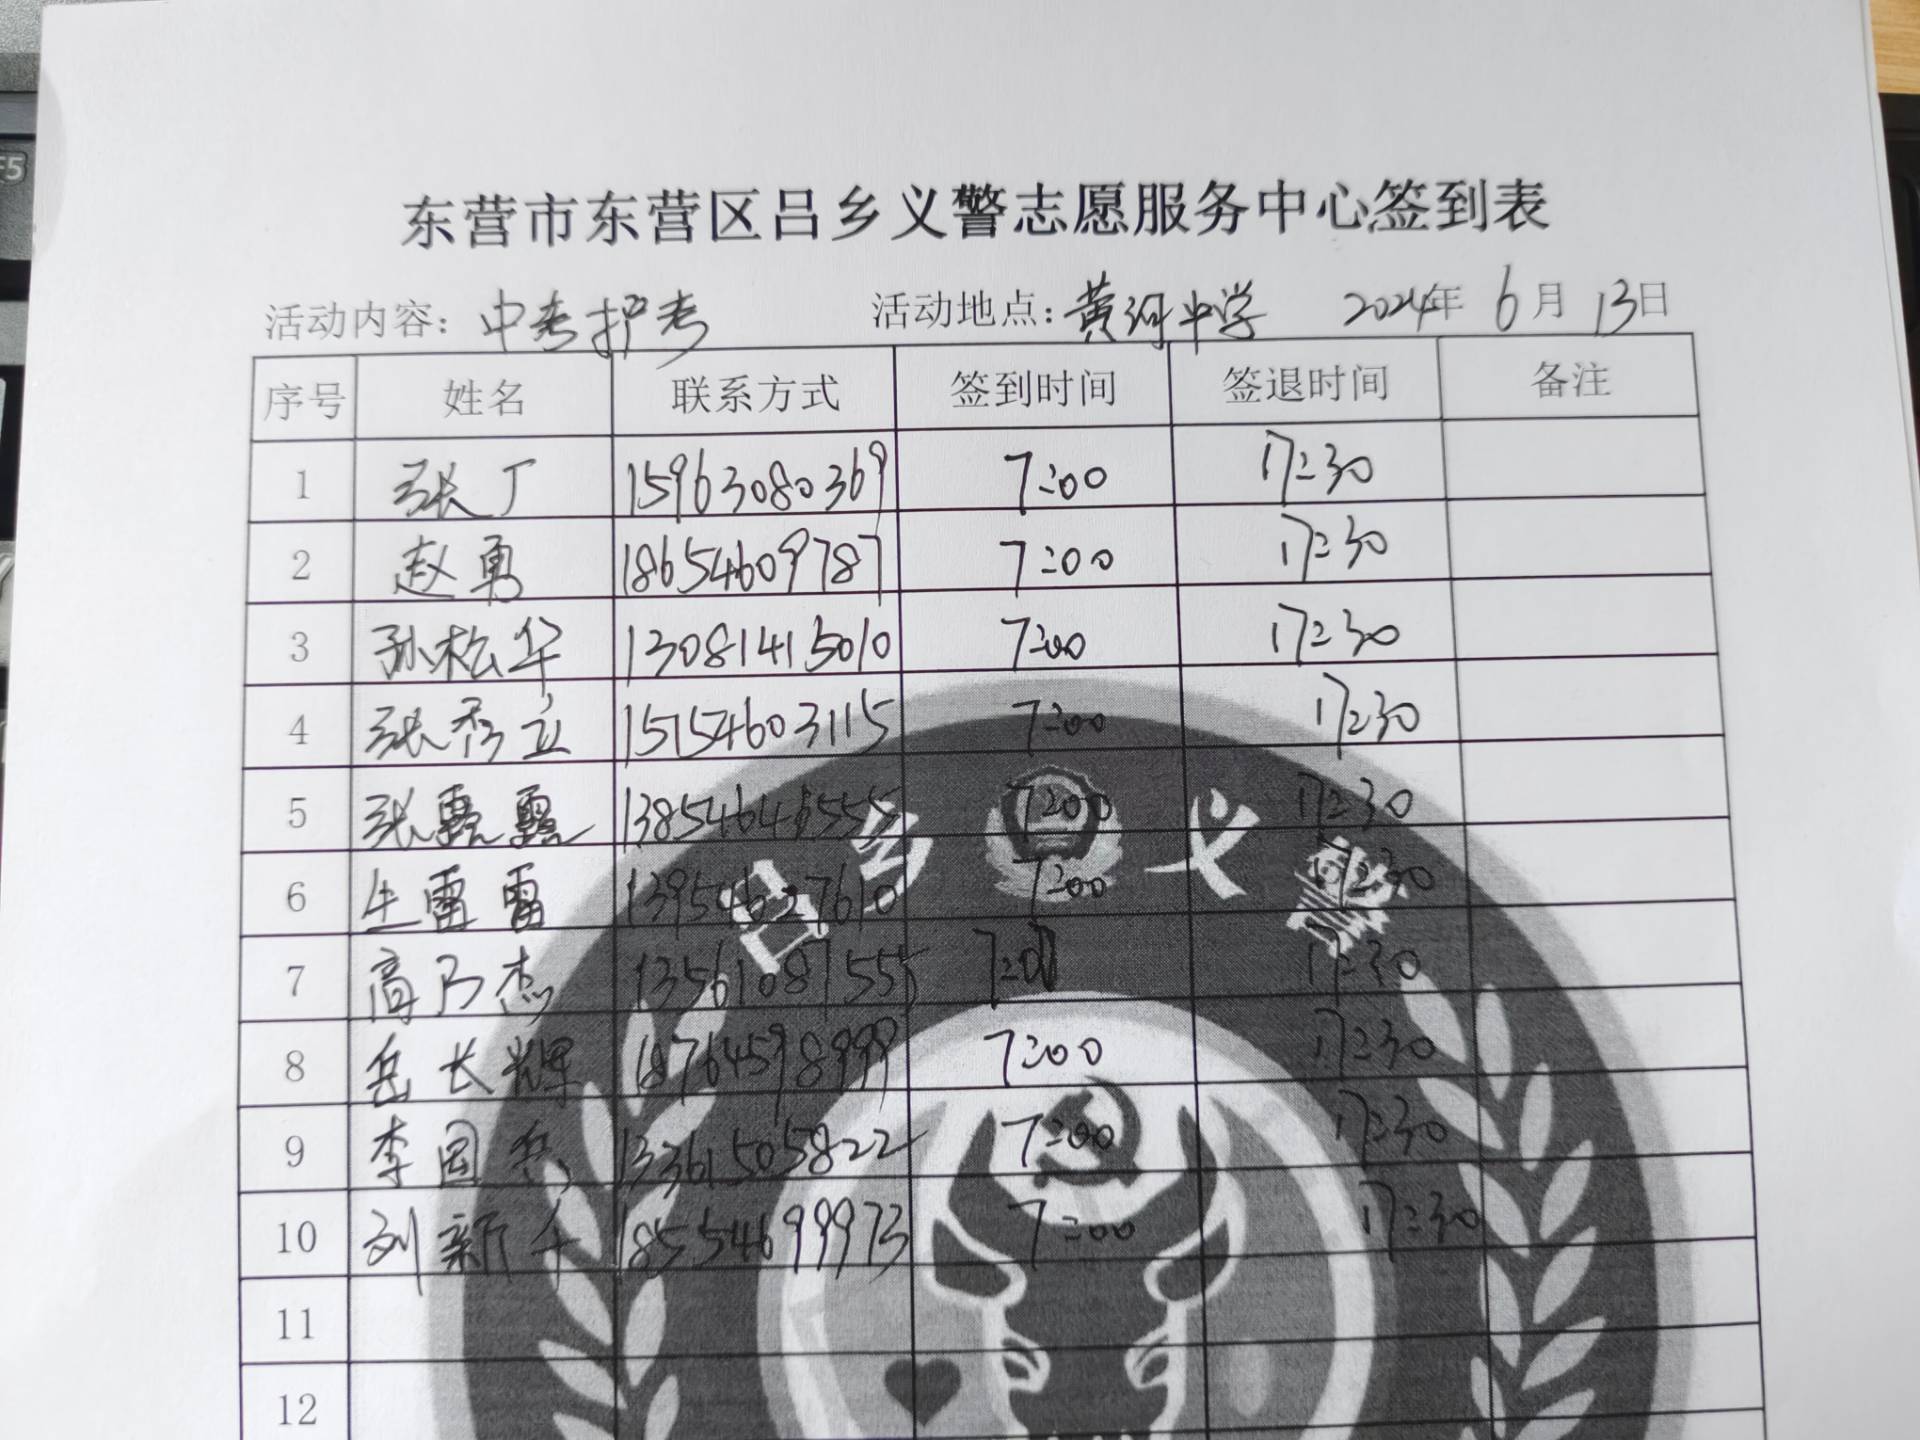 F5
东营市东营区吕乡义警志愿服务中心签到表
活动内容：中考护考 活动地点：黄河中学 2024年 6月 13日
序号 姓名 联系方式 签到时间 签退时间 备注
1 张丁 15963080369 7:00 17:30
2 赵勇 18654609787 7:00 17:30
3 孙松华 13081415010 7:00 17:30
4 张秀立 15154603115 7:00 17:30
5 张露露 7:00 17:30
6 生雷雷 13954627610 7:00 17:30
7 高乃杰 13561087555 7:00 17:30
8 岳长辉 18764598999 7:00 17:30
9 李国兵 13361505822 7:00 17:30
10 刘新 18554699973 7:00 17:30
11
12
吕乡义警